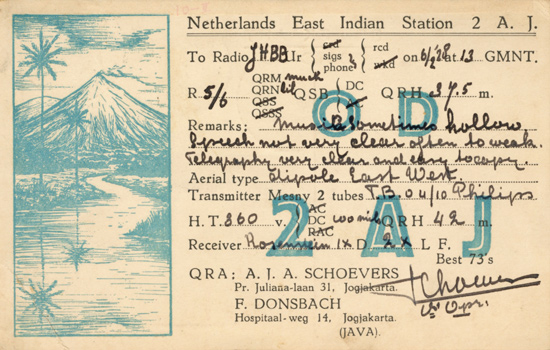 Netherlands East Indian Station 2 A. J.
To Radio JHBB Ur { crd sigs phone } { rcd wkd } on 6/2 '28 at 13 GMNT.
R 5/6 { QRM much QRN lil QSS QSSS } QSB { DC QRH 37.5 m.
OD
Remarks; Music Sometimes hollow
Speech not very clear often to weak.
Telegraphy very clear and easy to copy.
Aerial type Dipole East West.
Transmitter Mesny 2 tubes T.B. 04/10 Philips
H. T. 360 v. { AC DC RAC 100 mils QRH 42 m.
2 A J
Receiver 1x D. 2x L F.
Best 73's
QRA; A. J. A. SCHOEVERS
Pr. Juliana-laan 31, Jogjakarta.
F. DONSBACH
Hospitaal-weg 14, Jogjakarta.
(JAVA).
Schoevers
Opr.